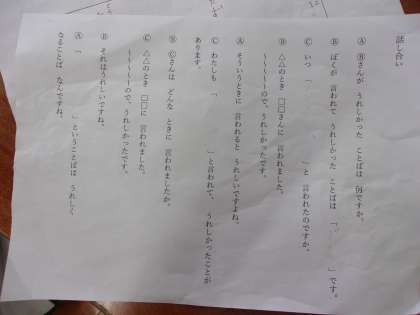 話し合い
Ⓐ Ⓑさんが うれしかった ことばは 何ですか。
Ⓑ ぼくが 言われて うれしかった ことばは「 」です。
Ⓒ いつ「 」と 言われたのですか。
Ⓑ △△のとき □□さんに 言われました。
～～～～ので、うれしかったです。
Ⓐ そういうときに 言われると うれしいですよね。
Ⓒ わたしも「 」と言われて、うれしかったことが
あります。
Ⓑ Ⓒさんは どんな ときに 言われましたか。
Ⓒ △△のとき □□に 言われました。
～～～～～ので、うれしかったです。
Ⓑ それはうれしいですね。
Ⓐ「 」ということばは うれしく
なることば なんですね。